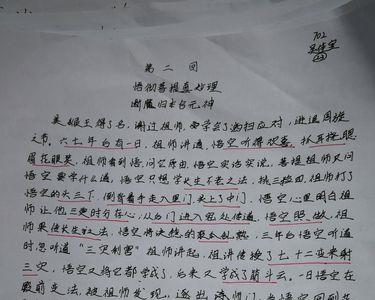 702
第二回
悟彻菩提真妙理
断魔归本合元神
美猴王得了名,谢过祖师,要学会了洒扫应对,进退周旋
之节。六七年后有一日,祖师讲道,悟空听得欢喜,抓耳挠腮
眉花眼笑,祖师看到悟空问空原由,悟空实话实说,菩提祖师又问
悟空要学什么道,悟空只想学长生不老之法,被三拒四,祖师打了
悟空的头三下,倒背着手走入里门,关上了中门,悟空心里明白祖
师让他三更时分存心,从后门进入密处传道,悟空照做,祖
师果传长生妙法,悟空将决想的滚瓜乱熟,三年后悟空听道
时忽听道"三灾利害"祖师讲起,祖讲传授了七十二变来躲
三灾,悟空又将它都学成,后来又学成了筋斗云。一日悟空在
众前变法,被祖师发现,逐出师门